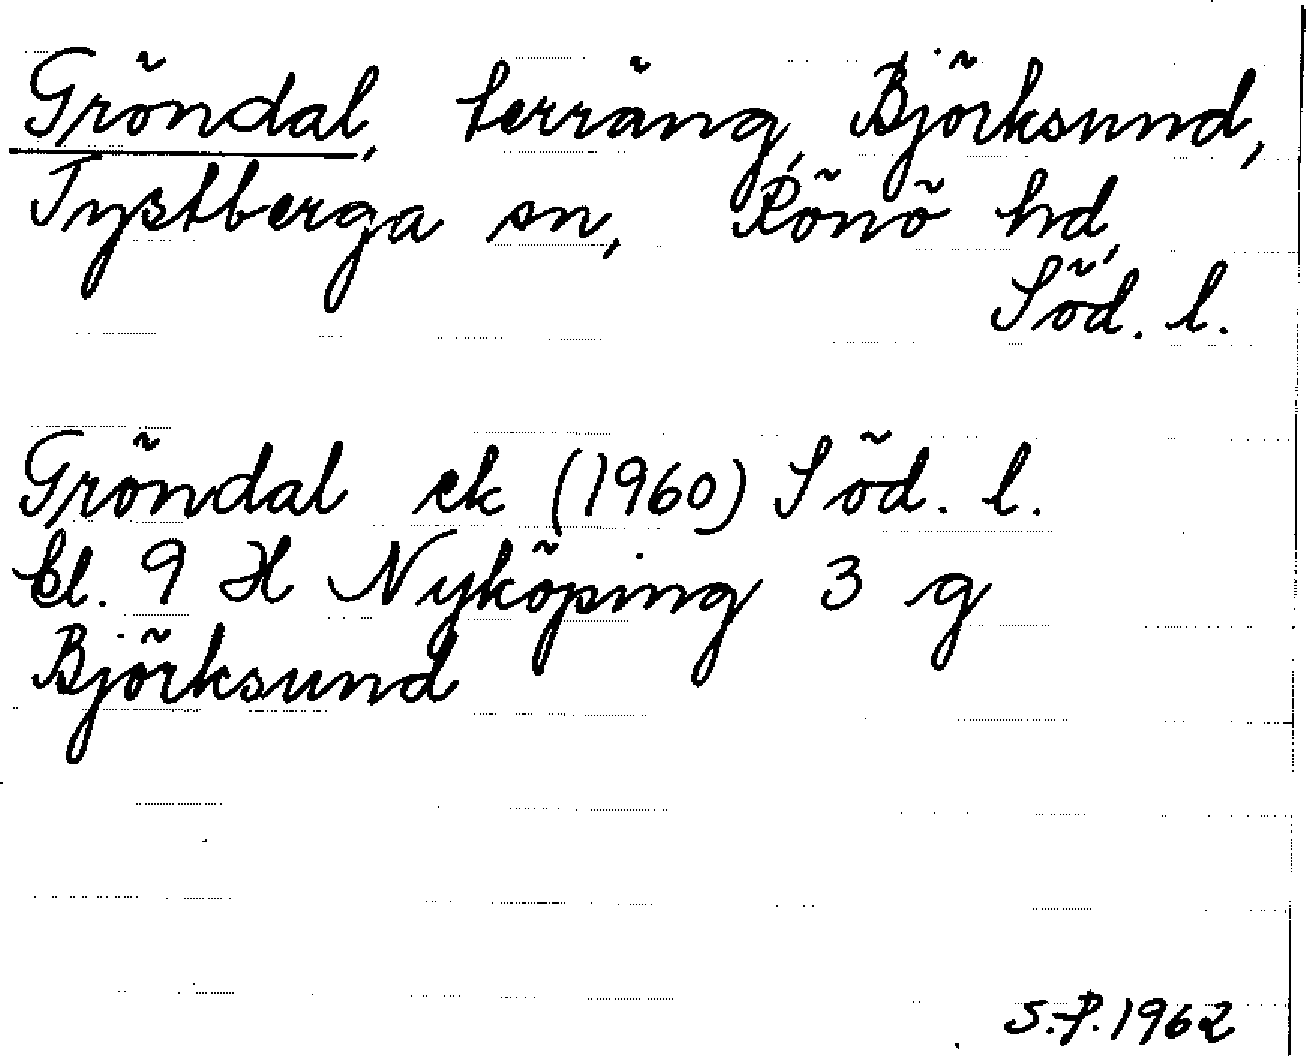 Gröndal, terräng, Björksund,
Tystberga sn, Rönö hd,
Söd. l.
Gröndal ek (1960) Söd. l.
bl. 9 H Nyköping 3 g
Björksund
S.P. 1962